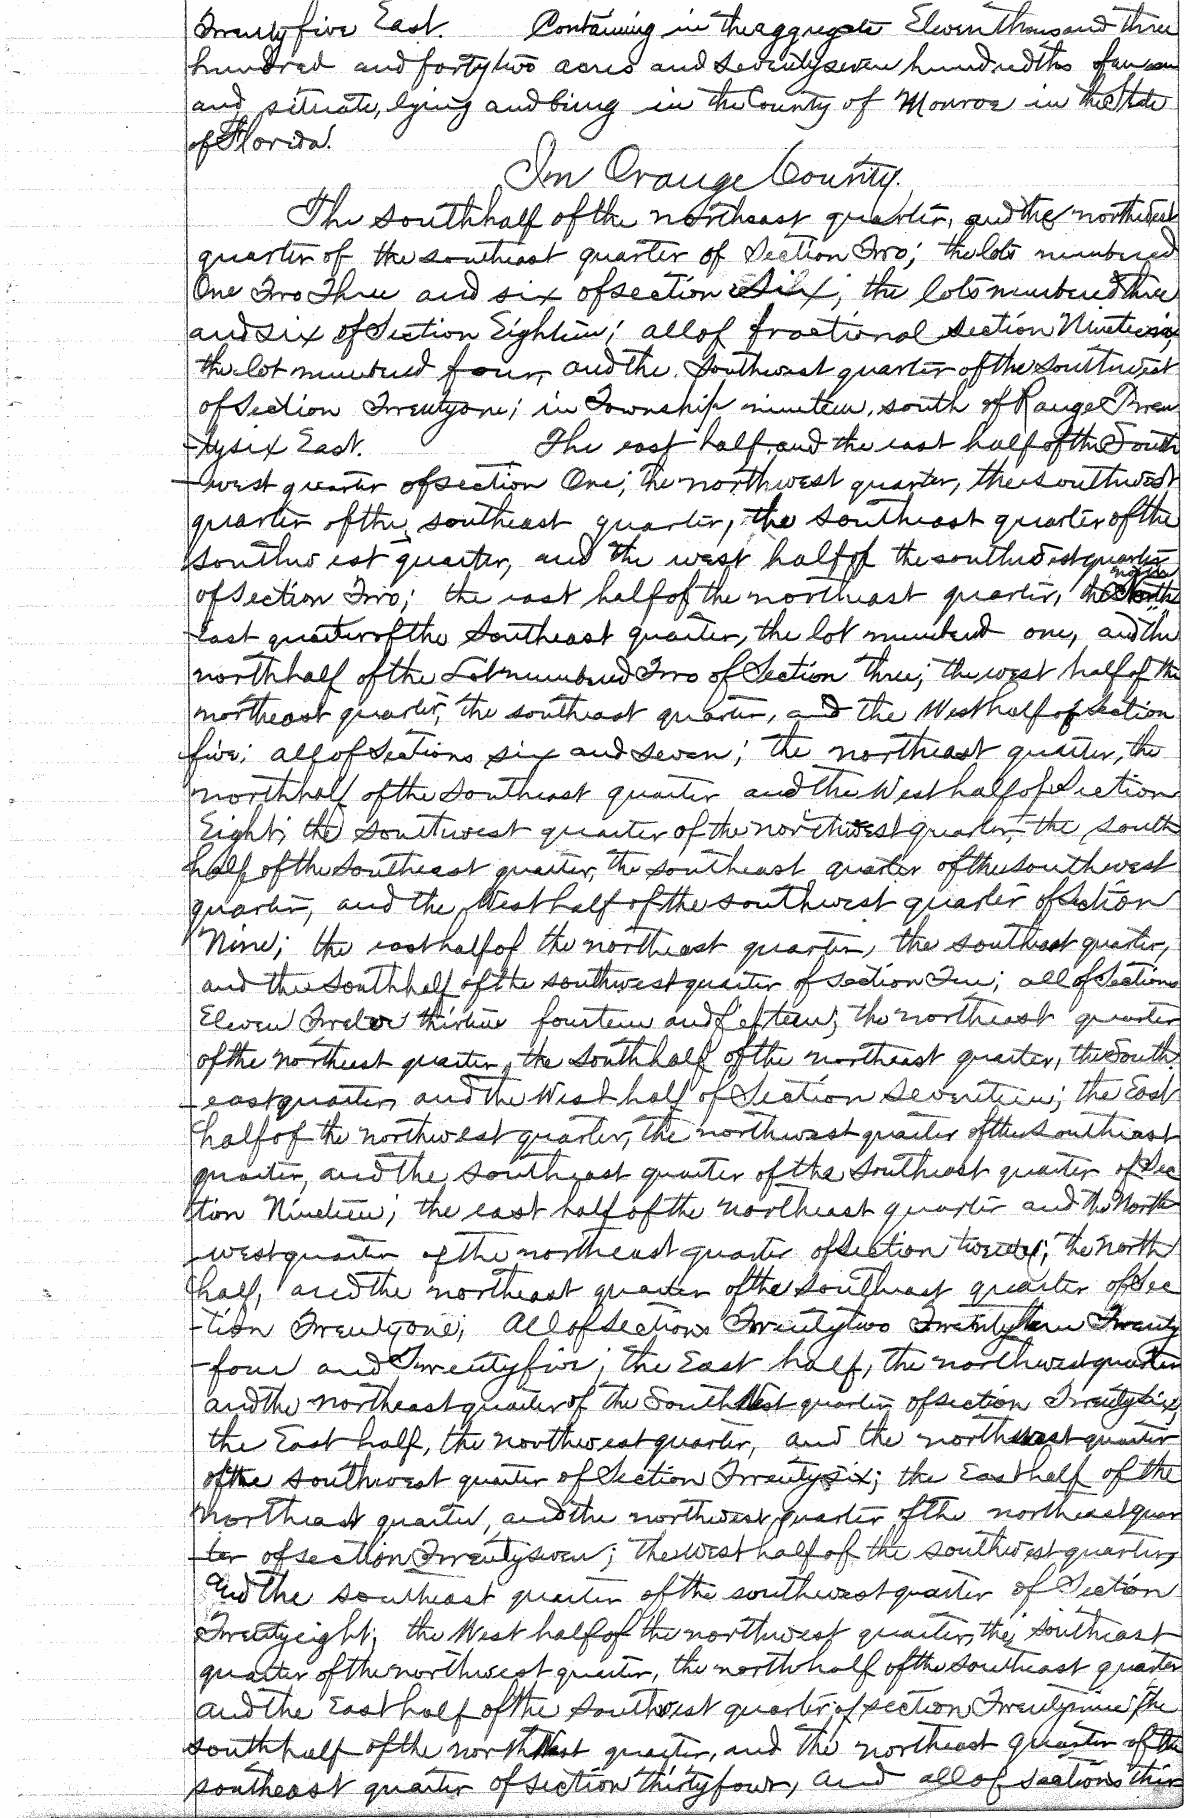 Twentyfive East. Containing in the aggregate Eleven thousand three
hundred and fortytwo acres and seventyseven hundredths of an acre
and situate, lying and being in the County of Monroe in the State
of Florida.
In Orange County.
The south half of the northeast quarter, and the northwest
quarter of the southeast quarter of Section Two; the lots numbered
One Two Three and six of section Six; the lots numbered three
and six of Section Eighteen; all of fractional section Nineteen;
the lot numbered four, and the Southwest quarter of the southwest
of Section Twentyone; in Township nineteen, south of Range Twen
-tysix East. The east half, and the east half of the South
-west quarter of section One; the northwest quarter, the southwest
quarter of the southeast quarter, the southeast quarter of the
southwest quarter, and the west half of the southwest quarter
of Section Two; the east half of the northeast quarter, the North
-east quarter of the Southeast quarter, the lot numbered one, and the
north half of the Lot numbered Two of Section three; the west half of the
northeast quarter, the southeast quarter, and the West half of Section
five; all of Sections six and seven; the northeast quarter, the
north half of the Southeast quarter and the West half of Section
Eight; the southwest quarter of the northwest quarter, the south
half of the Southeast quarter, the southeast quarter of the southwest
quarter, and the West half of the southwest quarter of Section
Nine; the east half of the northeast quarter, the southeast quarter,
and the South half of the southwest quarter of section Ten; all of Sections
Eleven Twelve thirteen fourteen and fifteen; the northeast quarter
of the northeast quarter, the South half of the northeast quarter, the South
-east quarter, and the West half of Section Seventeen; the East
half of the northwest quarter, the northwest quarter of the southeast
quarter, and the southeast quarter of the Southeast quarter of Sec
tion Nineteen; the east half of the northeast quarter and the North
-west quarter of the northeast quarter of section twenty; the north
half, and the northeast quarter of the Southeast quarter of Sec
-tion Twentyone; All of Sections Twentytwo Twentythree Twenty
-four and Twentyfive; the East half, the northwest quarter
and the northeast quarter of the Southwest quarter of section Twentysix;
the East half, the northwest quarter, and the northwest quarter
of the southwest quarter of Section Twentysix; the East half of the
Northeast quarter, and the northwest quarter of the northeast quar
-ter of section Twentyseven; the west half of the southwest quarter,
and the southeast quarter of the southwest quarter of Section
Twentyeight; the West half of the northwest quarter, the southeast
quarter of the northwest quarter, the north half of the southeast quarter
and the East half of the Southwest quarter, of section Twentynine; the
south half of the northwest quarter, and the northeast quarter of the
southeast quarter of section thirtyfour, and all of sections thir